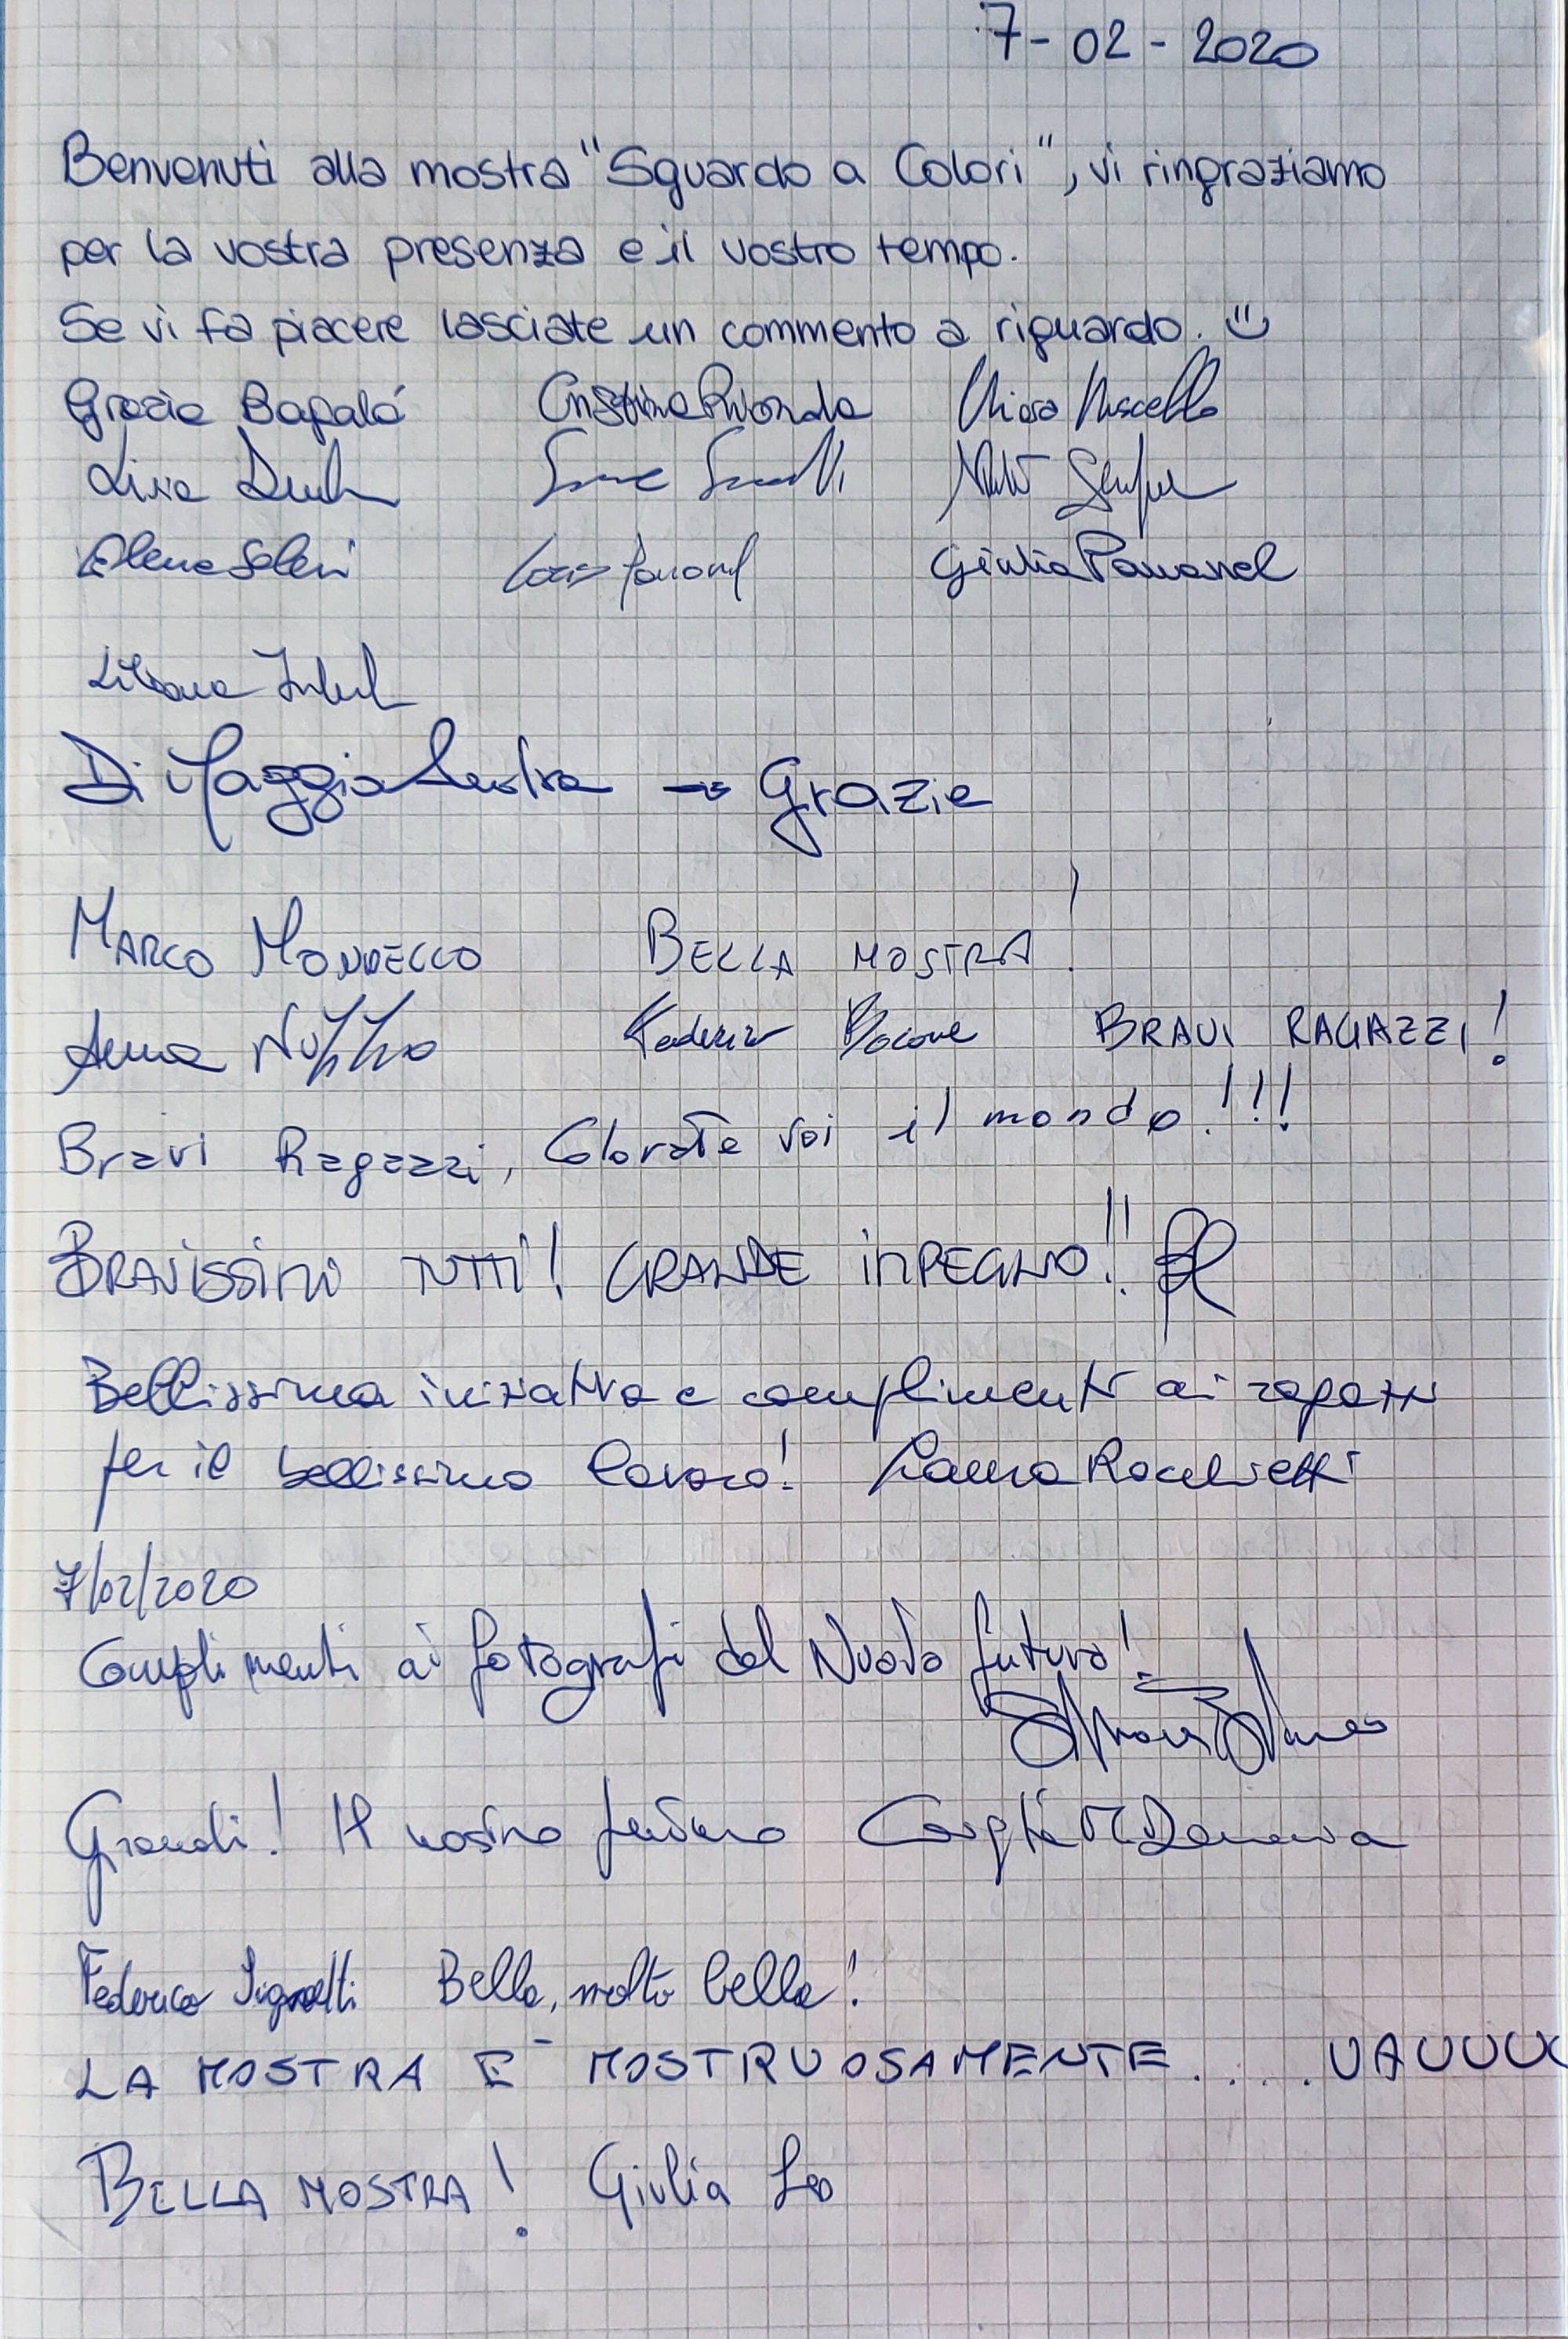 7-02-2020
Benvenuti alla mostra "Sguardo a Colori", vi ringraziamo
per la vostra presenza e il vostro tempo.
Se vi fa piacere lasciate un commento a riguardo. :)
Grazia Bagalá Cristina Chiara
Livia
Elena Giulia
Liliana
Di Maggio → Grazie
MARCO MONDELLO BELLA MOSTRA!
Anna Nuzzo BRAVI RAGAZZI!
Bravi Ragazzi, Colorate voi il mondo!!!
BRAVISSIMI TUTTI! GRANDE INPEGNO!!
Bellissima iniziativa e complimenti ai ragazzi
per il bellissimo lavoro! Laura Rocchietti
7/02/2020
Complimenti ai fotografi del Nuovo futuro!
Grandi! Il nostro futuro
Federico Bella, molto bella!
LA MOSTRA È MOSTRUOSAMENTE..... UAUUUU
BELLA MOSTRA! Giulia Leo